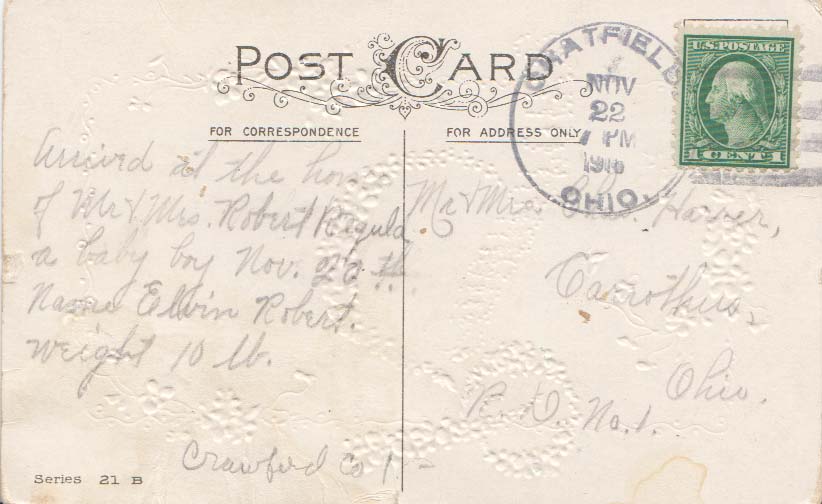 POST CARD
FOR CORRESPONDENCE
FOR ADDRESS ONLY
CHATFIELD
NOV
22
7 PM
1916
OHIO.
U.S. POSTAGE
1 CENT 1
Arrived at the home
of Mr & Mrs. Robert Regula
a baby boy Nov. 22th.
Name Elvin Robert.
weight 10 lb.
Crawford Co
Mr & Mrs Harver,
Carrothers,
Ohio.
R. D. No. 1.
Series 21 B